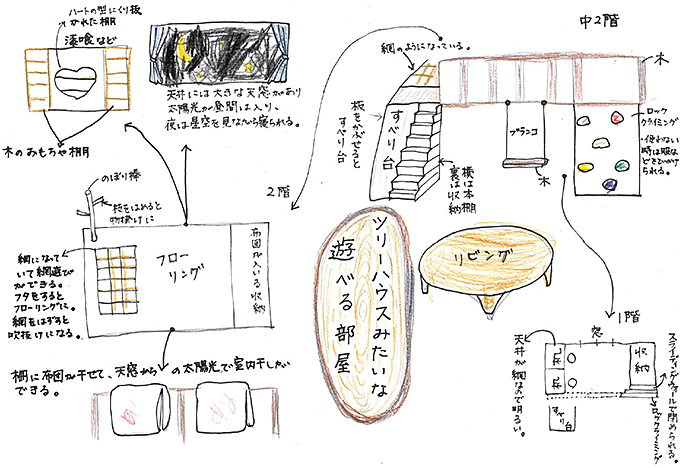 ハートの型にくり抜
かれた棚
漆喰など
木のおもちゃ棚
天井には大きな天窓があり
太陽光が昼間は入り、
夜は星空を見ながら寝られる。
中2階
網のようになっている。
木
板をかぶせると
すべり台
すべり台
横は本棚
裏は収納
ブランコ
木
ロック
クライミング
・使わない
時は服な
どをひっかけ
られる。
のぼり棒
枝をはめると
物掛けに
2階
網になって
いて網遊び
ができる。
フタをすると
フローリングに。
網をはずすと
吹抜けになる。
フロー
リング
布団が入いる収納
ツリーハウスみたいな
遊べる部屋
リビング
1階
窓
机
机
収納
天井が網なので明るい。
すべり台
スライディングウォールで閉められる。
ロッククライミング
柵に布団が干せて、天窓からの太陽光で室内干しも
できる。